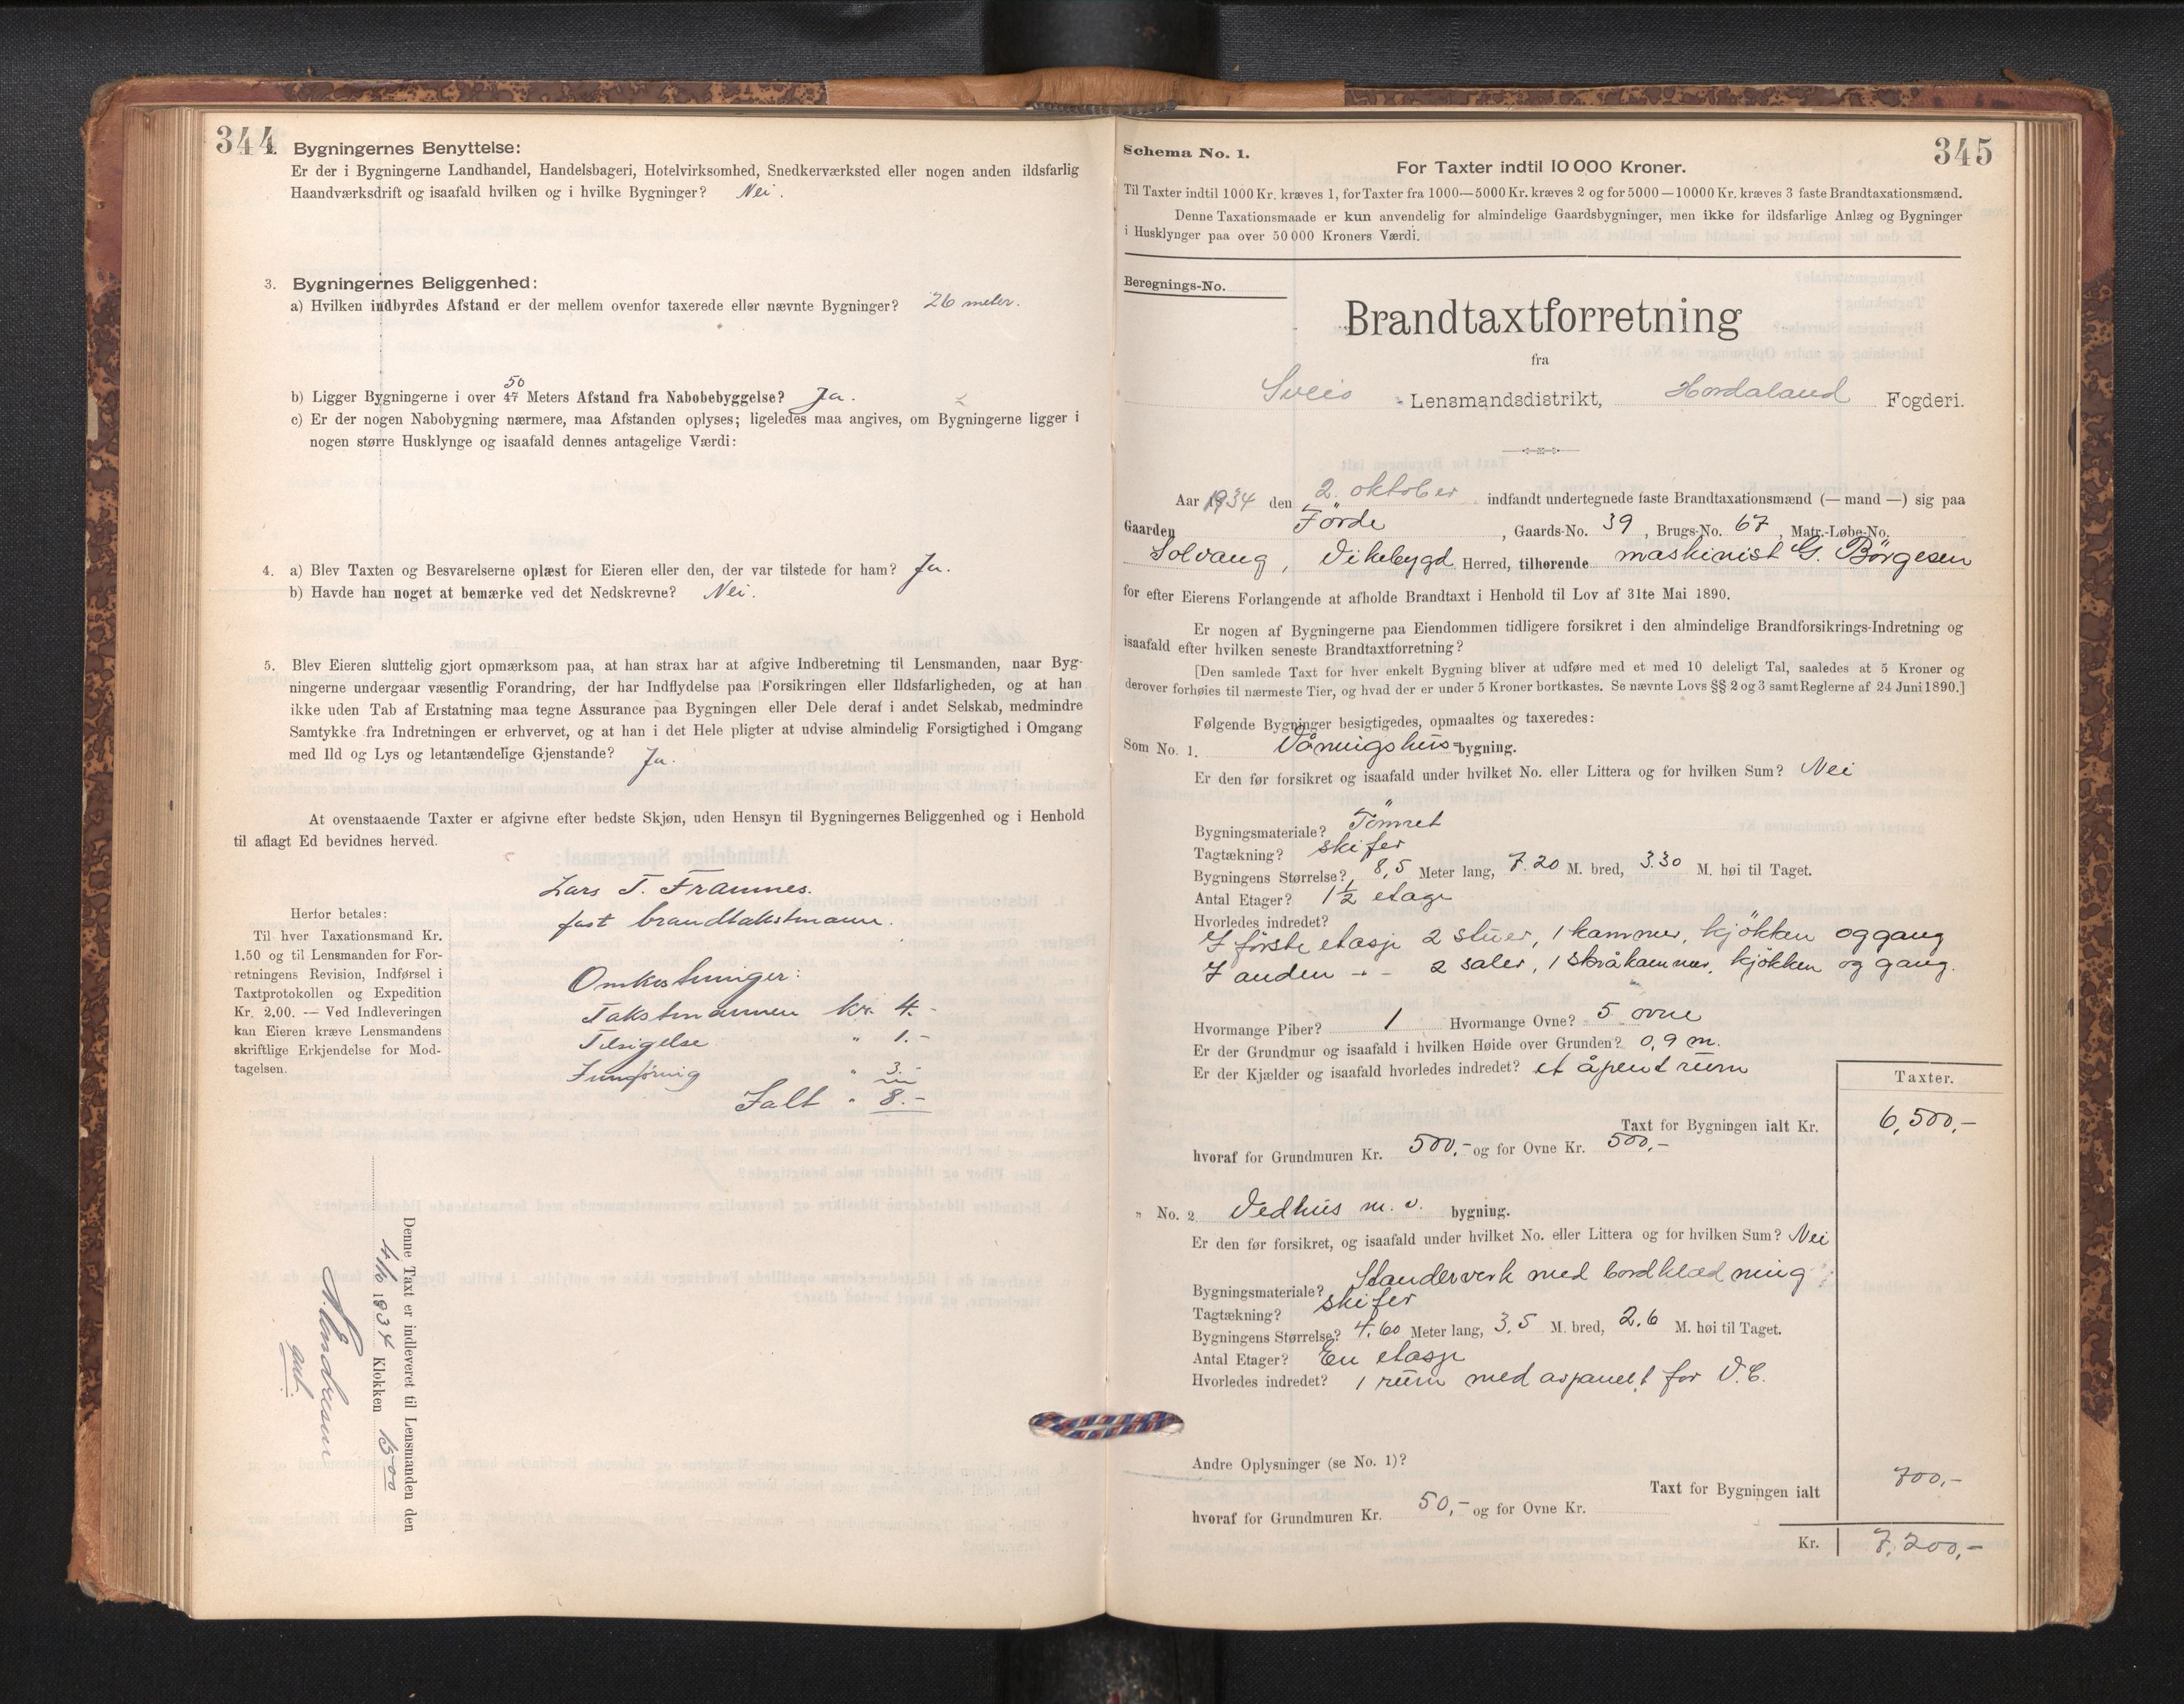 344
2. Bygningernes Benyttelse:
Er der i Bygningerne Landhandel, Handelsbageri, Hotelvirksomhed, Snedkerværksted eller nogen anden ildsfarlig
Haandværksdrift og isaafald hvilken og i hvilke Bygninger? Nei.
3. Bygningernes Beliggenhed:
a) Hvilken indbyrdes Afstand er der mellem ovenfor taxerede eller nævnte Bygninger? 26 meter.
50
b) Ligger Bygningerne i over 47 Meters Afstand fra Nabobebyggelse? Ja.
c) Er der nogen Nabobygning nærmere, maa Afstanden oplyses; ligeledes maa angives, om Bygningerne ligger i
nogen større Husklynge og isaafald dennes antagelige Værdi:
4. a) Blev Taxten og Besvarelserne oplæst for Eieren eller den, der var tilstede for ham? Ja.
b) Havde han noget at bemærke ved det Nedskrevne? Nei.
5. Blev Eieren sluttelig gjort opmærksom paa, at han strax har at afgive Indberetning til Lensmanden, naar Byg-
ningerne undergaar væsentlig Forandring, der har Indflydelse paa Forsikringen eller Ildsfarligheden, og at han
ikke uden Tab af Erstatning maa tegne Assurance paa Bygningen eller Dele deraf i andet Selskab, medmindre
Samtykke fra Indretningen er erhvervet, og at han i det Hele pligter at udvise almindelig Forsigtighed i Omgang
med Ild og Lys og letantændelige Gjenstande? Ja.
At ovenstaaende Taxter er afgivne efter bedste Skjøn, uden Hensyn til Bygningernes Beliggenhed og i Henhold
til aflagt Ed bevidnes herved.
Lars T. Framnes.
fast brandtakstmann.
Herfor betales:
Til hver Taxationsmand Kr.
1.50 og til Lensmanden for For-
retningens Revision, Indførsel i
Taxtprotokollen og Expedition
Kr. 2.00. — Ved Indleveringen
kan Eieren kræve Lensmandens
skriftlige Erkjendelse for Mod-
tagelsen.
Omkostninger:
Takstmannen kr. 4.-
Tilsigelse " 1.-
Innføring " 3.-
Ialt " 8.-
Denne Taxt er indleveret til Lensmanden den
4/10 1934 Klokken 15oo
N. Endresen
aut
345
Schema No. 1.
For Taxter indtil 10 000 Kroner.
Til Taxter indtil 1000 Kr. kræves 1, for Taxter fra 1000—5000 Kr. kræves 2 og for 5000—10000 Kr. kræves 3 faste Brandtaxationsmænd.
Denne Taxationsmaade er kun anvendelig for almindelige Gaardsbygninger, men ikke for ildsfarlige Anlæg og Bygninger
i Husklynger paa over 50 000 Kroners Værdi.
Beregnings-No.
Brandtaxtforretning
fra
Sveio Lensmandsdistrikt, Hordaland Fogderi.
Aar 1934 den 2. oktober indfandt undertegnede faste Brandtaxationsmænd (— mand —) sig paa
Gaarden Förde, Gaards-No. 39, Brugs-No. 67, Matr.-Løbe-No.
Solvang, Vikebygd Herred, tilhørende maskinist G. Börgesen
for efter Eierens Forlangende at afholde Brandtaxt i Henhold til Lov af 31te Mai 1890.
Er nogen af Bygningerne paa Eiendommen tidligere forsikret i den almindelige Brandforsikrings-Indretning og
isaafald efter hvilken seneste Brandtaxtforretning?
[Den samlede Taxt for hver enkelt Bygning bliver at udføre med et med 10 deleligt Tal, saaledes at 5 Kroner og
derover forhøies til nærmeste Tier, og hvad der er under 5 Kroner bortkastes. Se nævnte Lovs §§ 2 og 3 samt Reglerne af 24 Juni 1890.]
Følgende Bygninger besigtigedes, opmaaltes og taxeredes:
Som No. 1. Våningshus-bygning.
Er den før forsikret og isaafald under hvilket No. eller Littera og for hvilken Sum? Nei
Bygningsmateriale? Tömret
Tagtækning? skifer
Bygningens Størrelse? 8,5 Meter lang, 7.20 M. bred, 3.30 M. høi til Taget.
Antal Etager? 1½ etage
Hvorledes indredet?
I förste etasje 2 stuer, 1 kammer, kjökken og gang
I anden - - 2 saler, 1 skråkammer, kjökken og gang.
Hvormange Piber? 1 Hvormange Ovne? 5 ovne
Er der Grundmur og isaafald i hvilken Høide over Grunden? 0,9 m.
Er der Kjælder og isaafald hvorledes indredet? et åpent rum
Taxter.
Taxt for Bygningen ialt Kr. 6,500,-
hvoraf for Grundmuren Kr. 500,- og for Ovne Kr. 500,-
" No. 2 Vedhus m. v. bygning.
Er den før forsikret, og isaafald under hvilket No. eller Littera og for hvilken Sum? Nei
Bygningsmateriale? Standerverk med bordklædning
Tagtækning? skifer
Bygningens Størrelse? 4.60 Meter lang, 3.5 M. bred, 2.6 M. høi til Taget.
Antal Etager? En etasje
Hvorledes indredet? 1 rum med avpanelt for V.C.
Andre Oplysninger (se No. 1)?
Taxt for Bygningen ialt 700,-
hvoraf for Grundmuren Kr. 50,- og for Ovne Kr.
Kr. 7,200,-